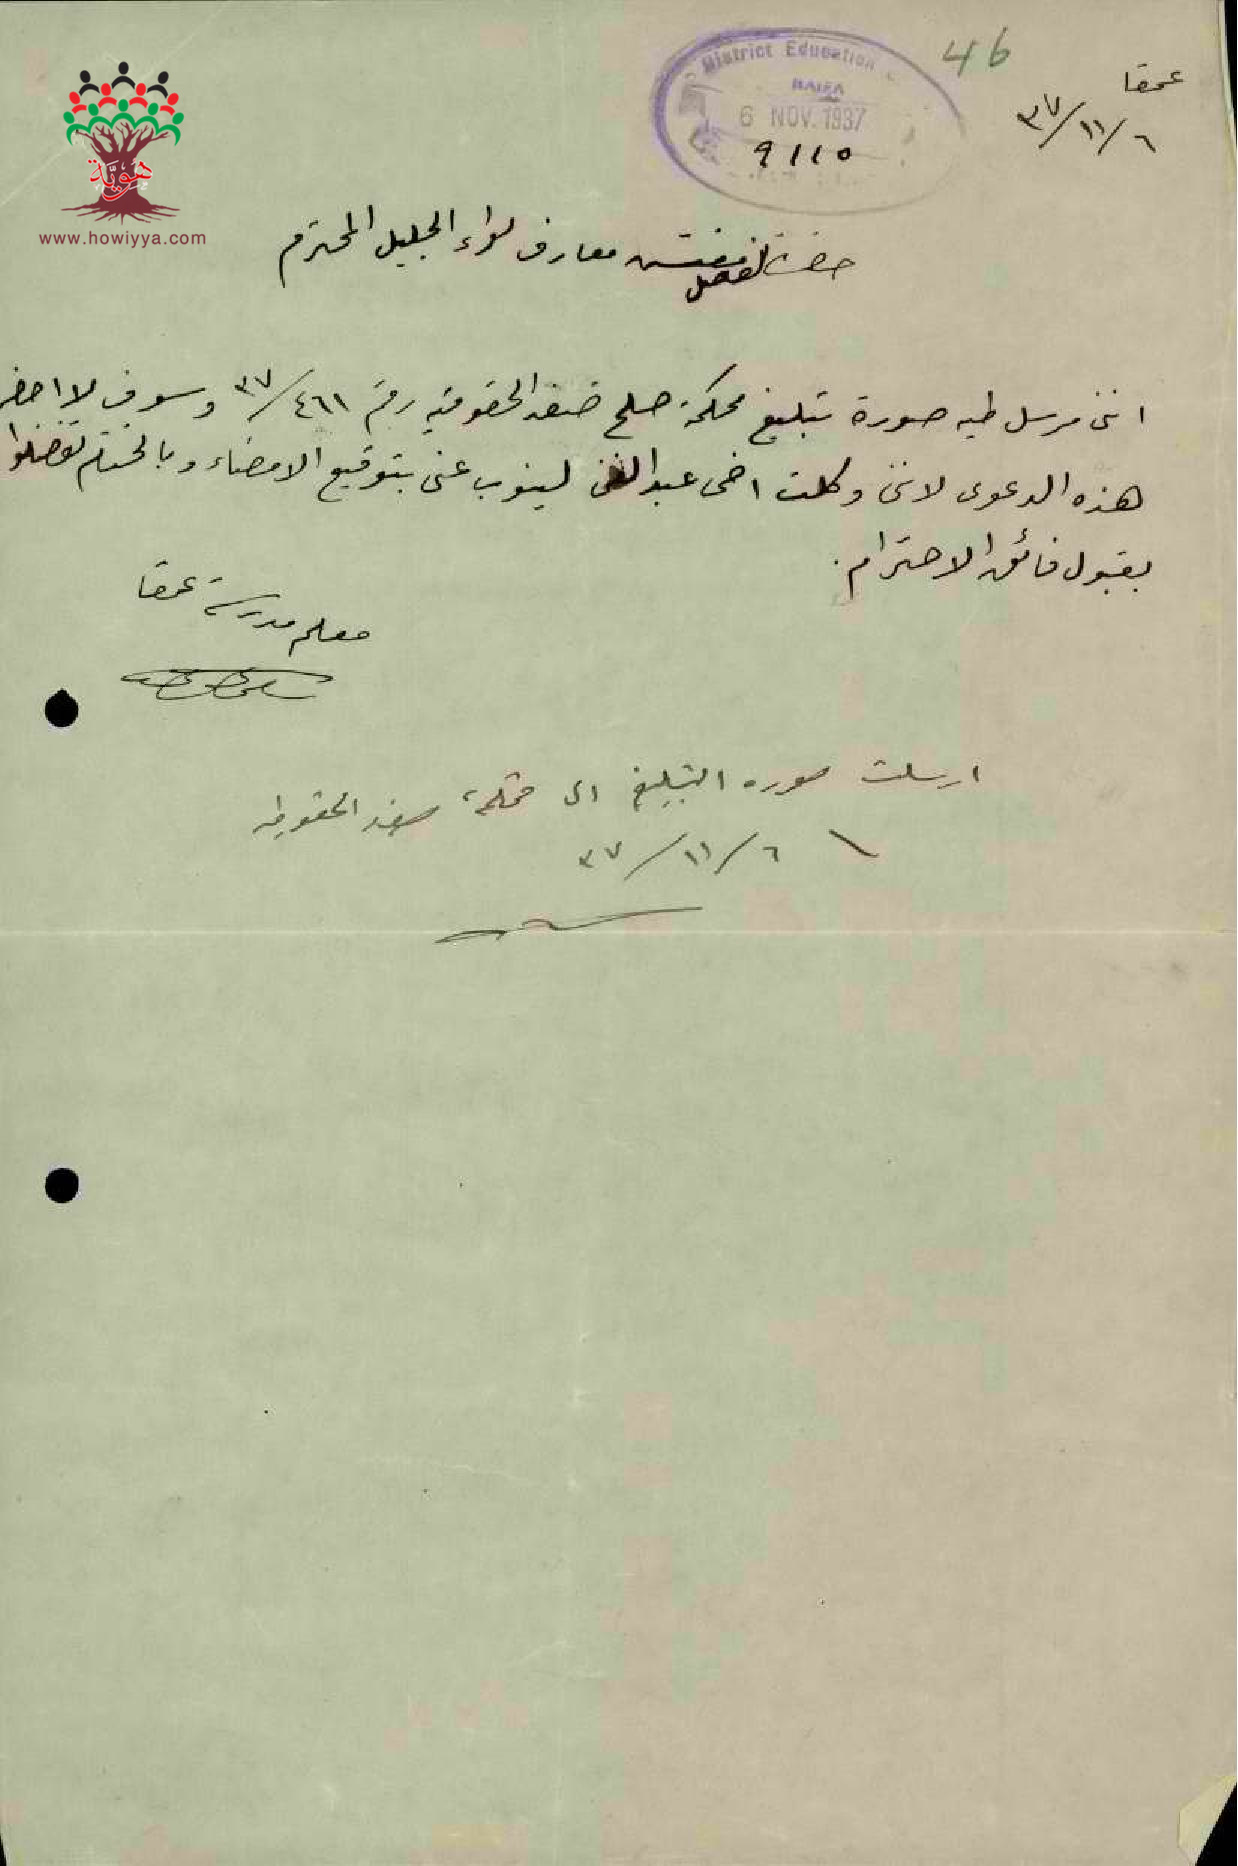 46
عمقا
٣٧/١١/٦
District Education
HAIFA
6 NOV. 1937
9110
هَويّة
www.howiyya.com
حضرة مفتش معارف لواء الجليل المحترم
انني مرسل طيه صورة تبليغ محكمة صلح صفد الحقوقيه رقم ٣٧/٤٦١١ وسوف لا احضر
هذه الدعوى لانني وكلت اخي عبد الغني لينوب عني بتوقيع الامضاء وبالختام تفضلوا
بقبول فائق الاحترام.
معلم مدرسة عمقا
ارسلت صوره التبليغ الى محكمة صفد الحقوقيه
٣٧/١١/٦